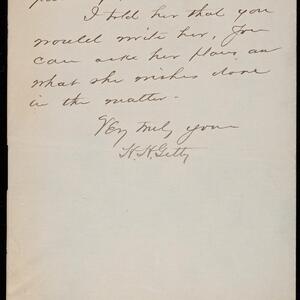 I told her that you
would write her, You
can ask her plans, and
what she wishes done
in the matter.
Very truly yours
H. H. Getty